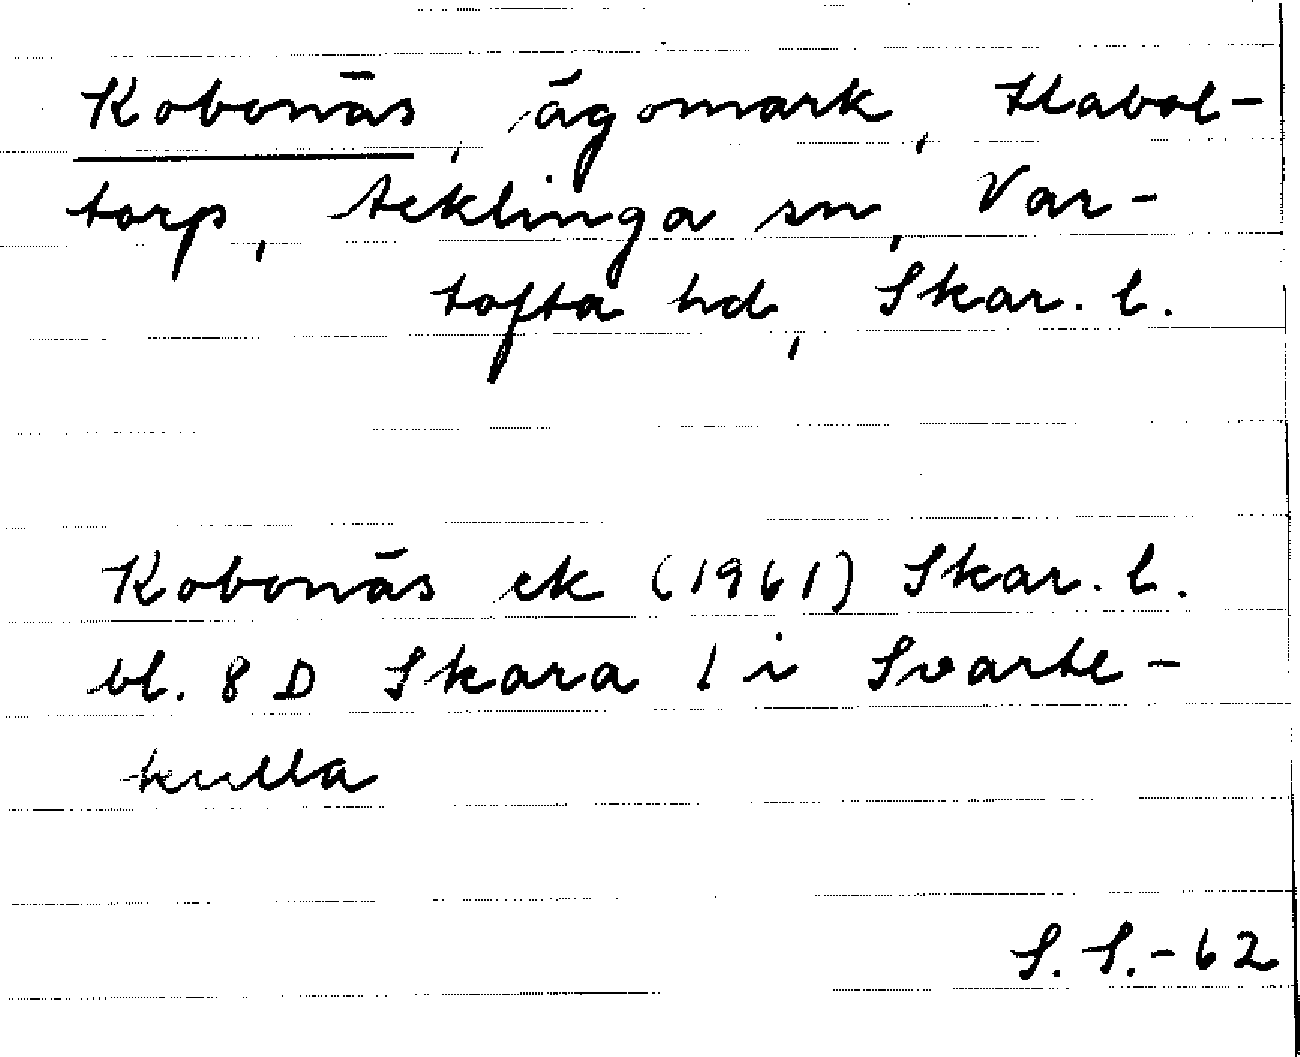 Kobonäs, ägomark, Habol-
torp, Acklinga sn, Var-
tofta hd, Skar. l.
Kobonäs ek (1961) Skar. l.
bl. 8 D Skara 1 i Svarte-
kulla
S. S. - 62